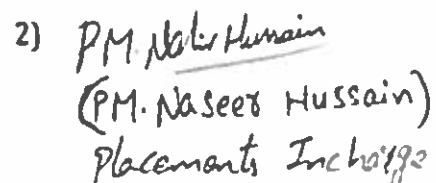 2) PM. Nasir Hussain
(PM. Naseer Hussain)
Placements Incharge